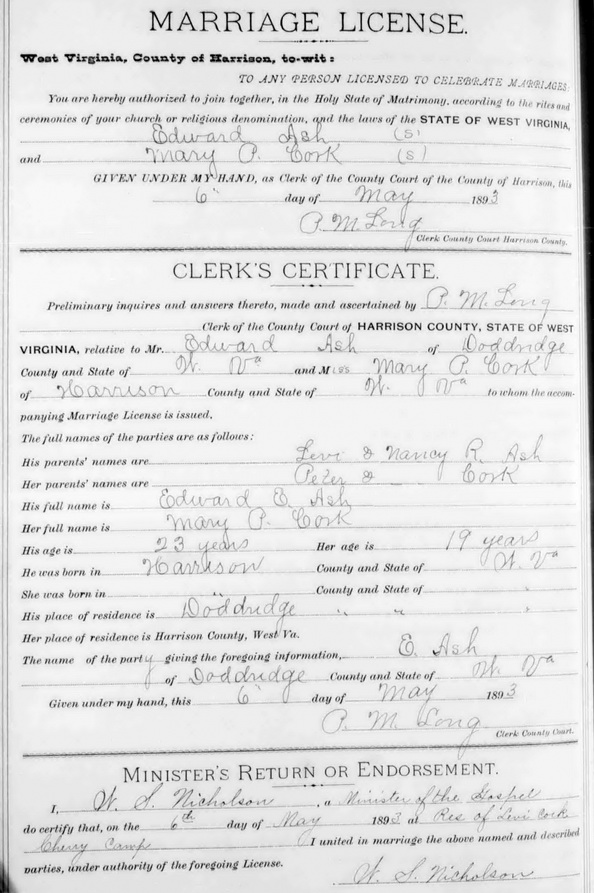 MARRIAGE LICENSE.
West Virginia, County of Harrison, to-wit:
TO ANY PERSON LICENSED TO CELEBRATE MARRIAGES:
You are hereby authorized to join together, in the Holy State of Matrimony, according to the rites and
ceremonies of your church or religious denomination, and the laws of the STATE OF WEST VIRGINIA,
Edward Ash (S)
and Mary P. Cork (S)
GIVEN UNDER MY HAND, as Clerk of the County Court of the County of Harrison, this
6" day of May 1893
P. M. Long
Clerk County Court Harrison County.
CLERK'S CERTIFICATE.
Preliminary inquires and answers thereto, made and ascertained by P. M. Long
Clerk of the County Court of HARRISON COUNTY, STATE OF WEST
VIRGINIA, relative to Mr. Edward Ash of Doddridge
County and State of W. Va and Miss Mary P. Cork
of Harrison County and State of W. Va to whom the accom-
panying Marriage License is issued.
The full names of the parties are as follows:
His parents' names are Levi & Nancy R. Ash
Her parents' names are Peter & — Cork
His full name is Edward E. Ash
Her full name is Mary P. Cork
His age is 23 years Her age is 19 years
He was born in Harrison County and State of W. Va
She was born in " County and State of "
His place of residence is Doddridge " " "
Her place of residence is Harrison County, West Va.
The name of the party giving the foregoing information, E. Ash
of Doddridge County and State of W. Va
Given under my hand, this 6" day of May 1893
P. M. Long
Clerk County Court.
MINISTER'S RETURN OR ENDORSEMENT.
I, W. S. Nicholson, a Minister of the Gospel
do certify that, on the 6th day of May 1893 at Res of Levi Cork
Cherry Camp I united in marriage the above named and described
parties, under authority of the foregoing License.
W. S. Nicholson